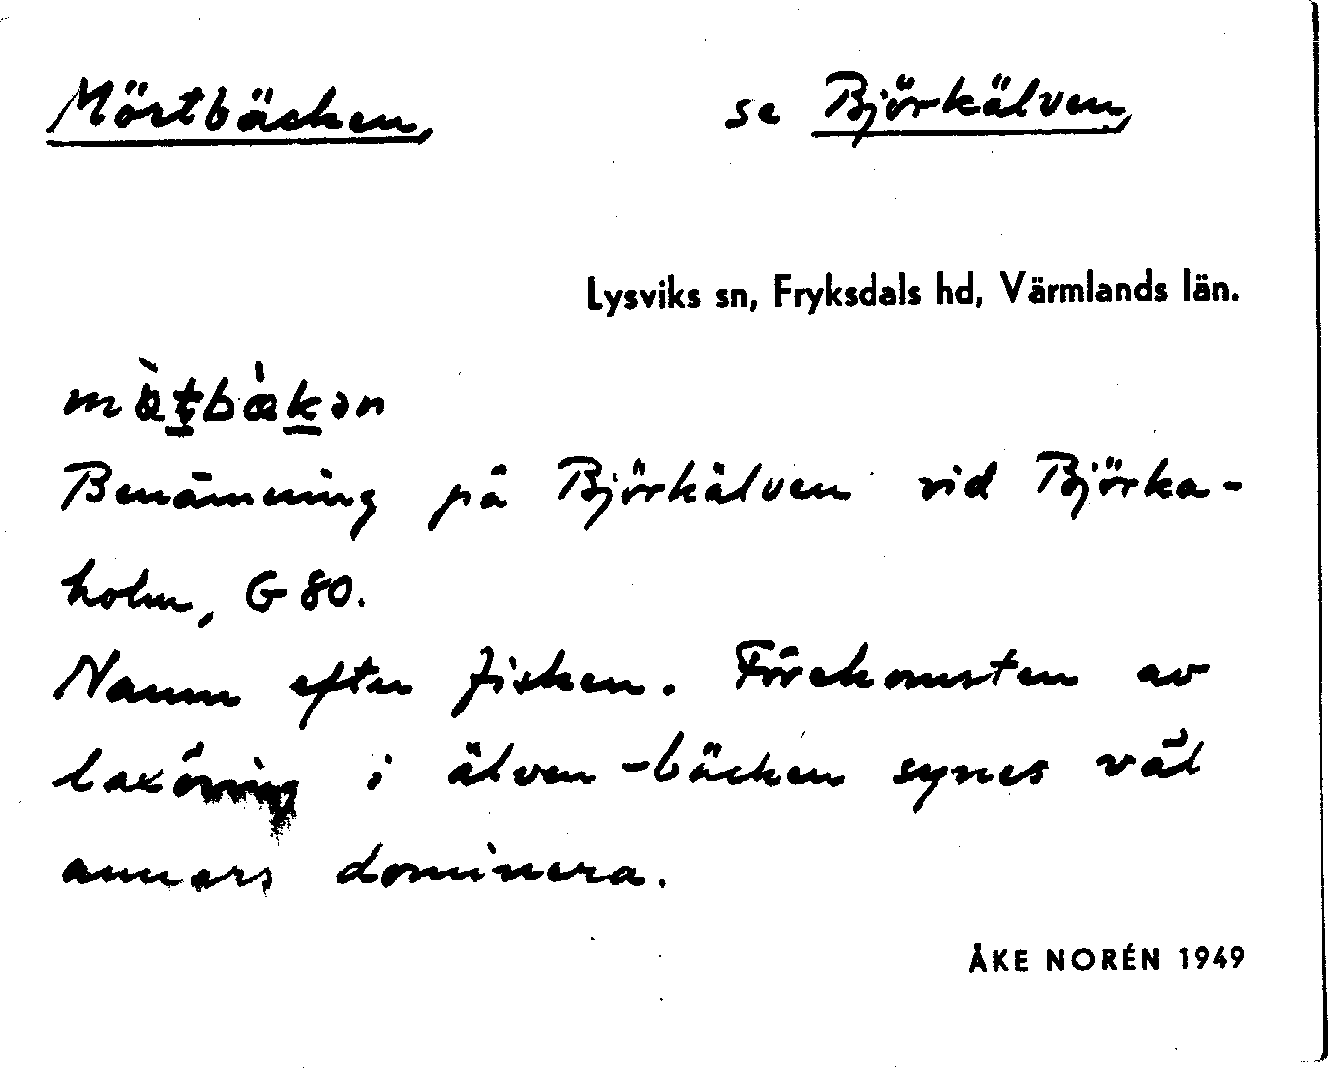 Mörtbäcken, se Björkälven,
Lysviks sn, Fryksdals hd, Värmlands län.
Benämning på Björkälven vid Björka-
holm, G 80.
Namn efter fisken. Förekomsten av
laxöring i älven-bäcken synes väl
annars dominera.
ÅKE NORÉN 1949